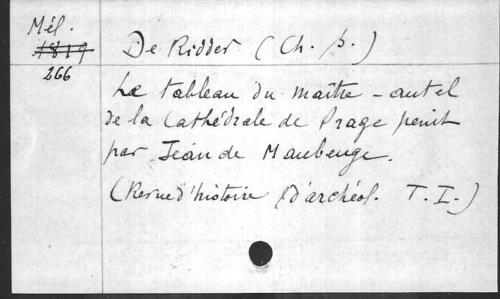 Mél.
1819
266
De Ridder (Ch. b.)
Le tableau du maître-autel
de la Cathédrale de Prage peint
par Jean de Maubeuge.
(Revue d'histoire d'archéol. T. I.)